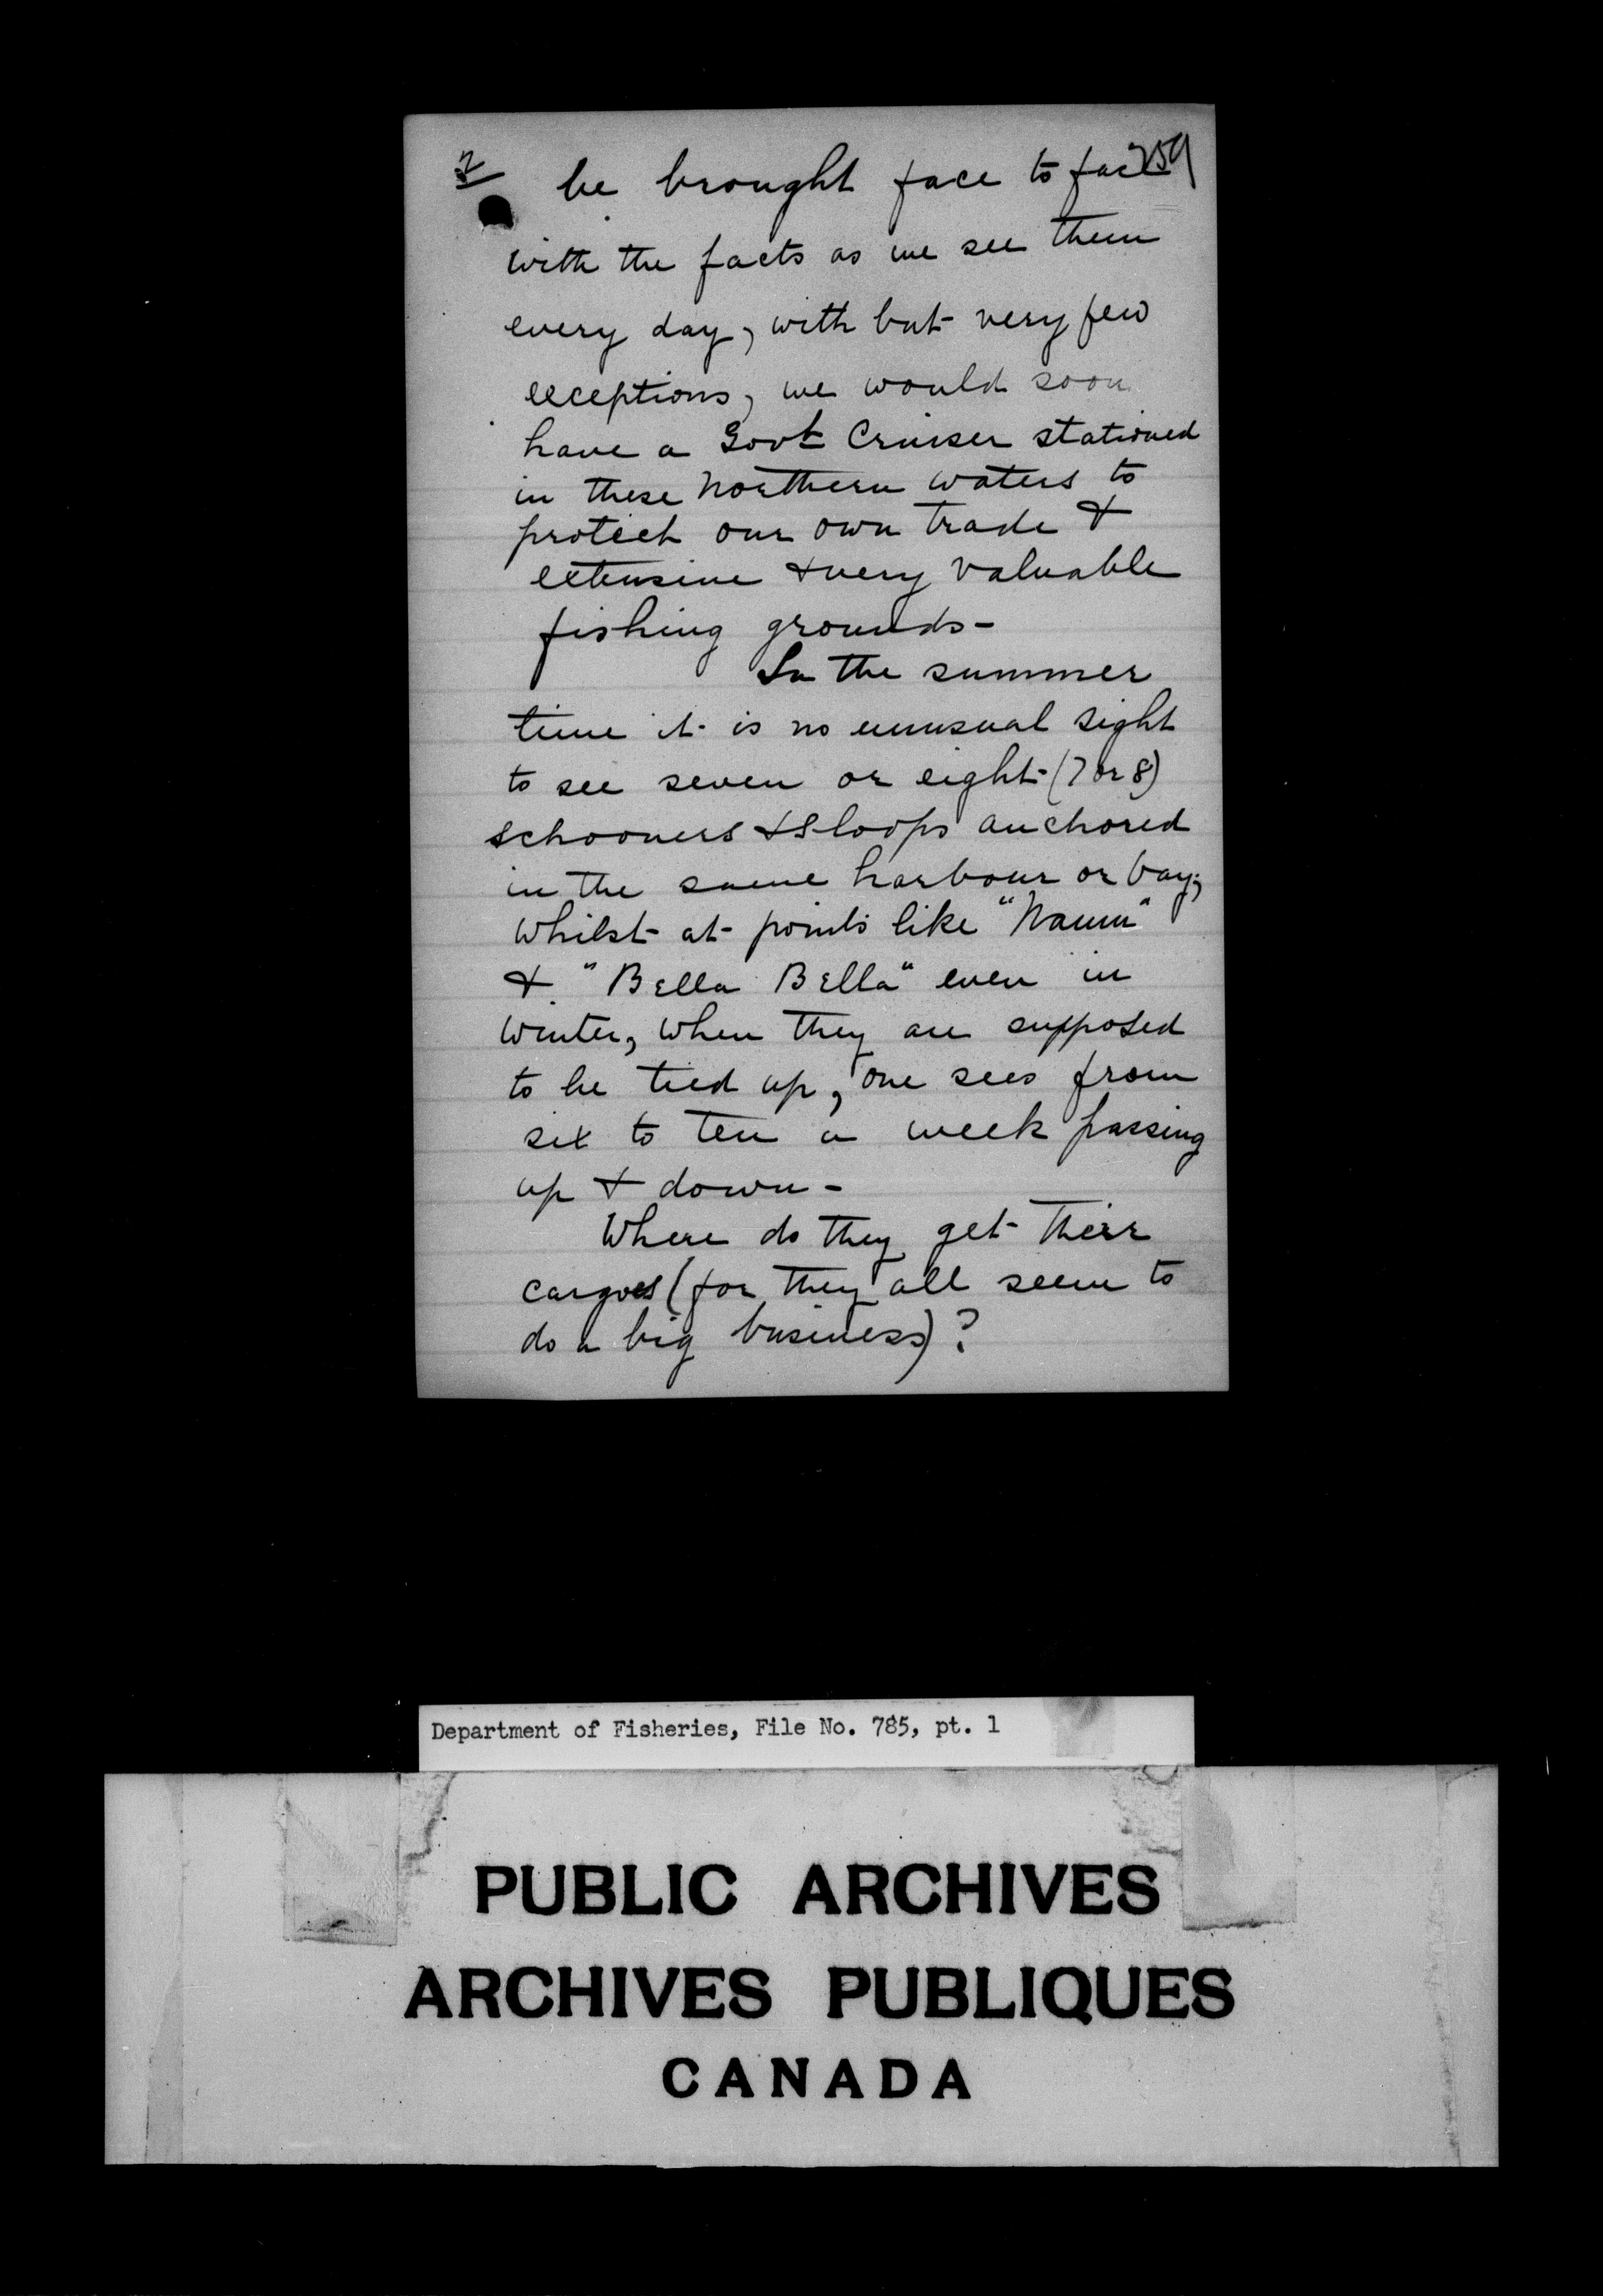 2
259
be brought face to face
with the facts as we see them
every day, with but very few
exceptions, we would soon
have a Govt Cruiser stationed
in these Northern waters to
protect our own trade &
extensive & very valuable
fishing grounds -
In the summer
time it is no unusual sight
to see seven or eight (7 or 8)
schooners & sloops anchored
in the same harbour or bay;
whilst at points like "Namu"
& "Bella Bella" even in
winter, when they are supposed
to be tied up, one sees from
six to ten a week passing
up & down -
Where do they get their
cargoes (for they all seem to
do a big business)?
Department of Fisheries, File No. 785, pt. 1
PUBLIC ARCHIVES
ARCHIVES PUBLIQUES
CANADA